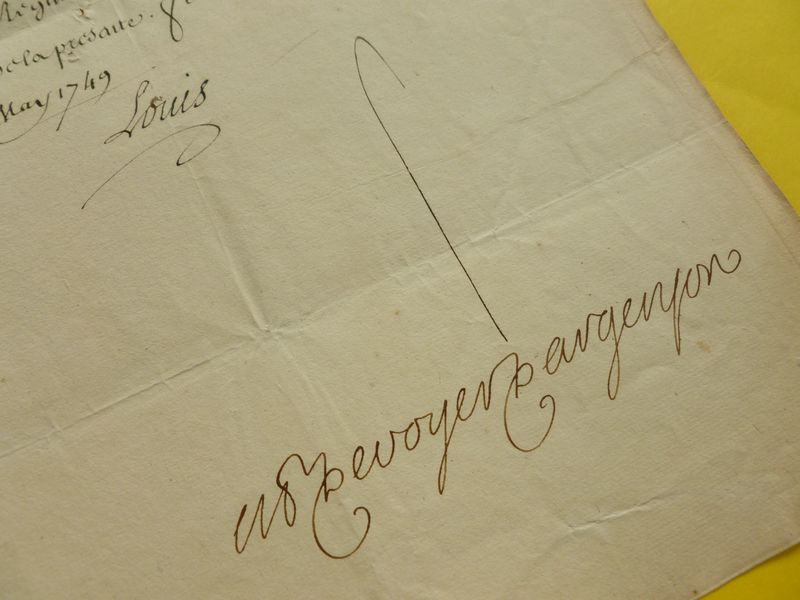 de la presante.
May 1749
Louis
M P de voyer d'argenson